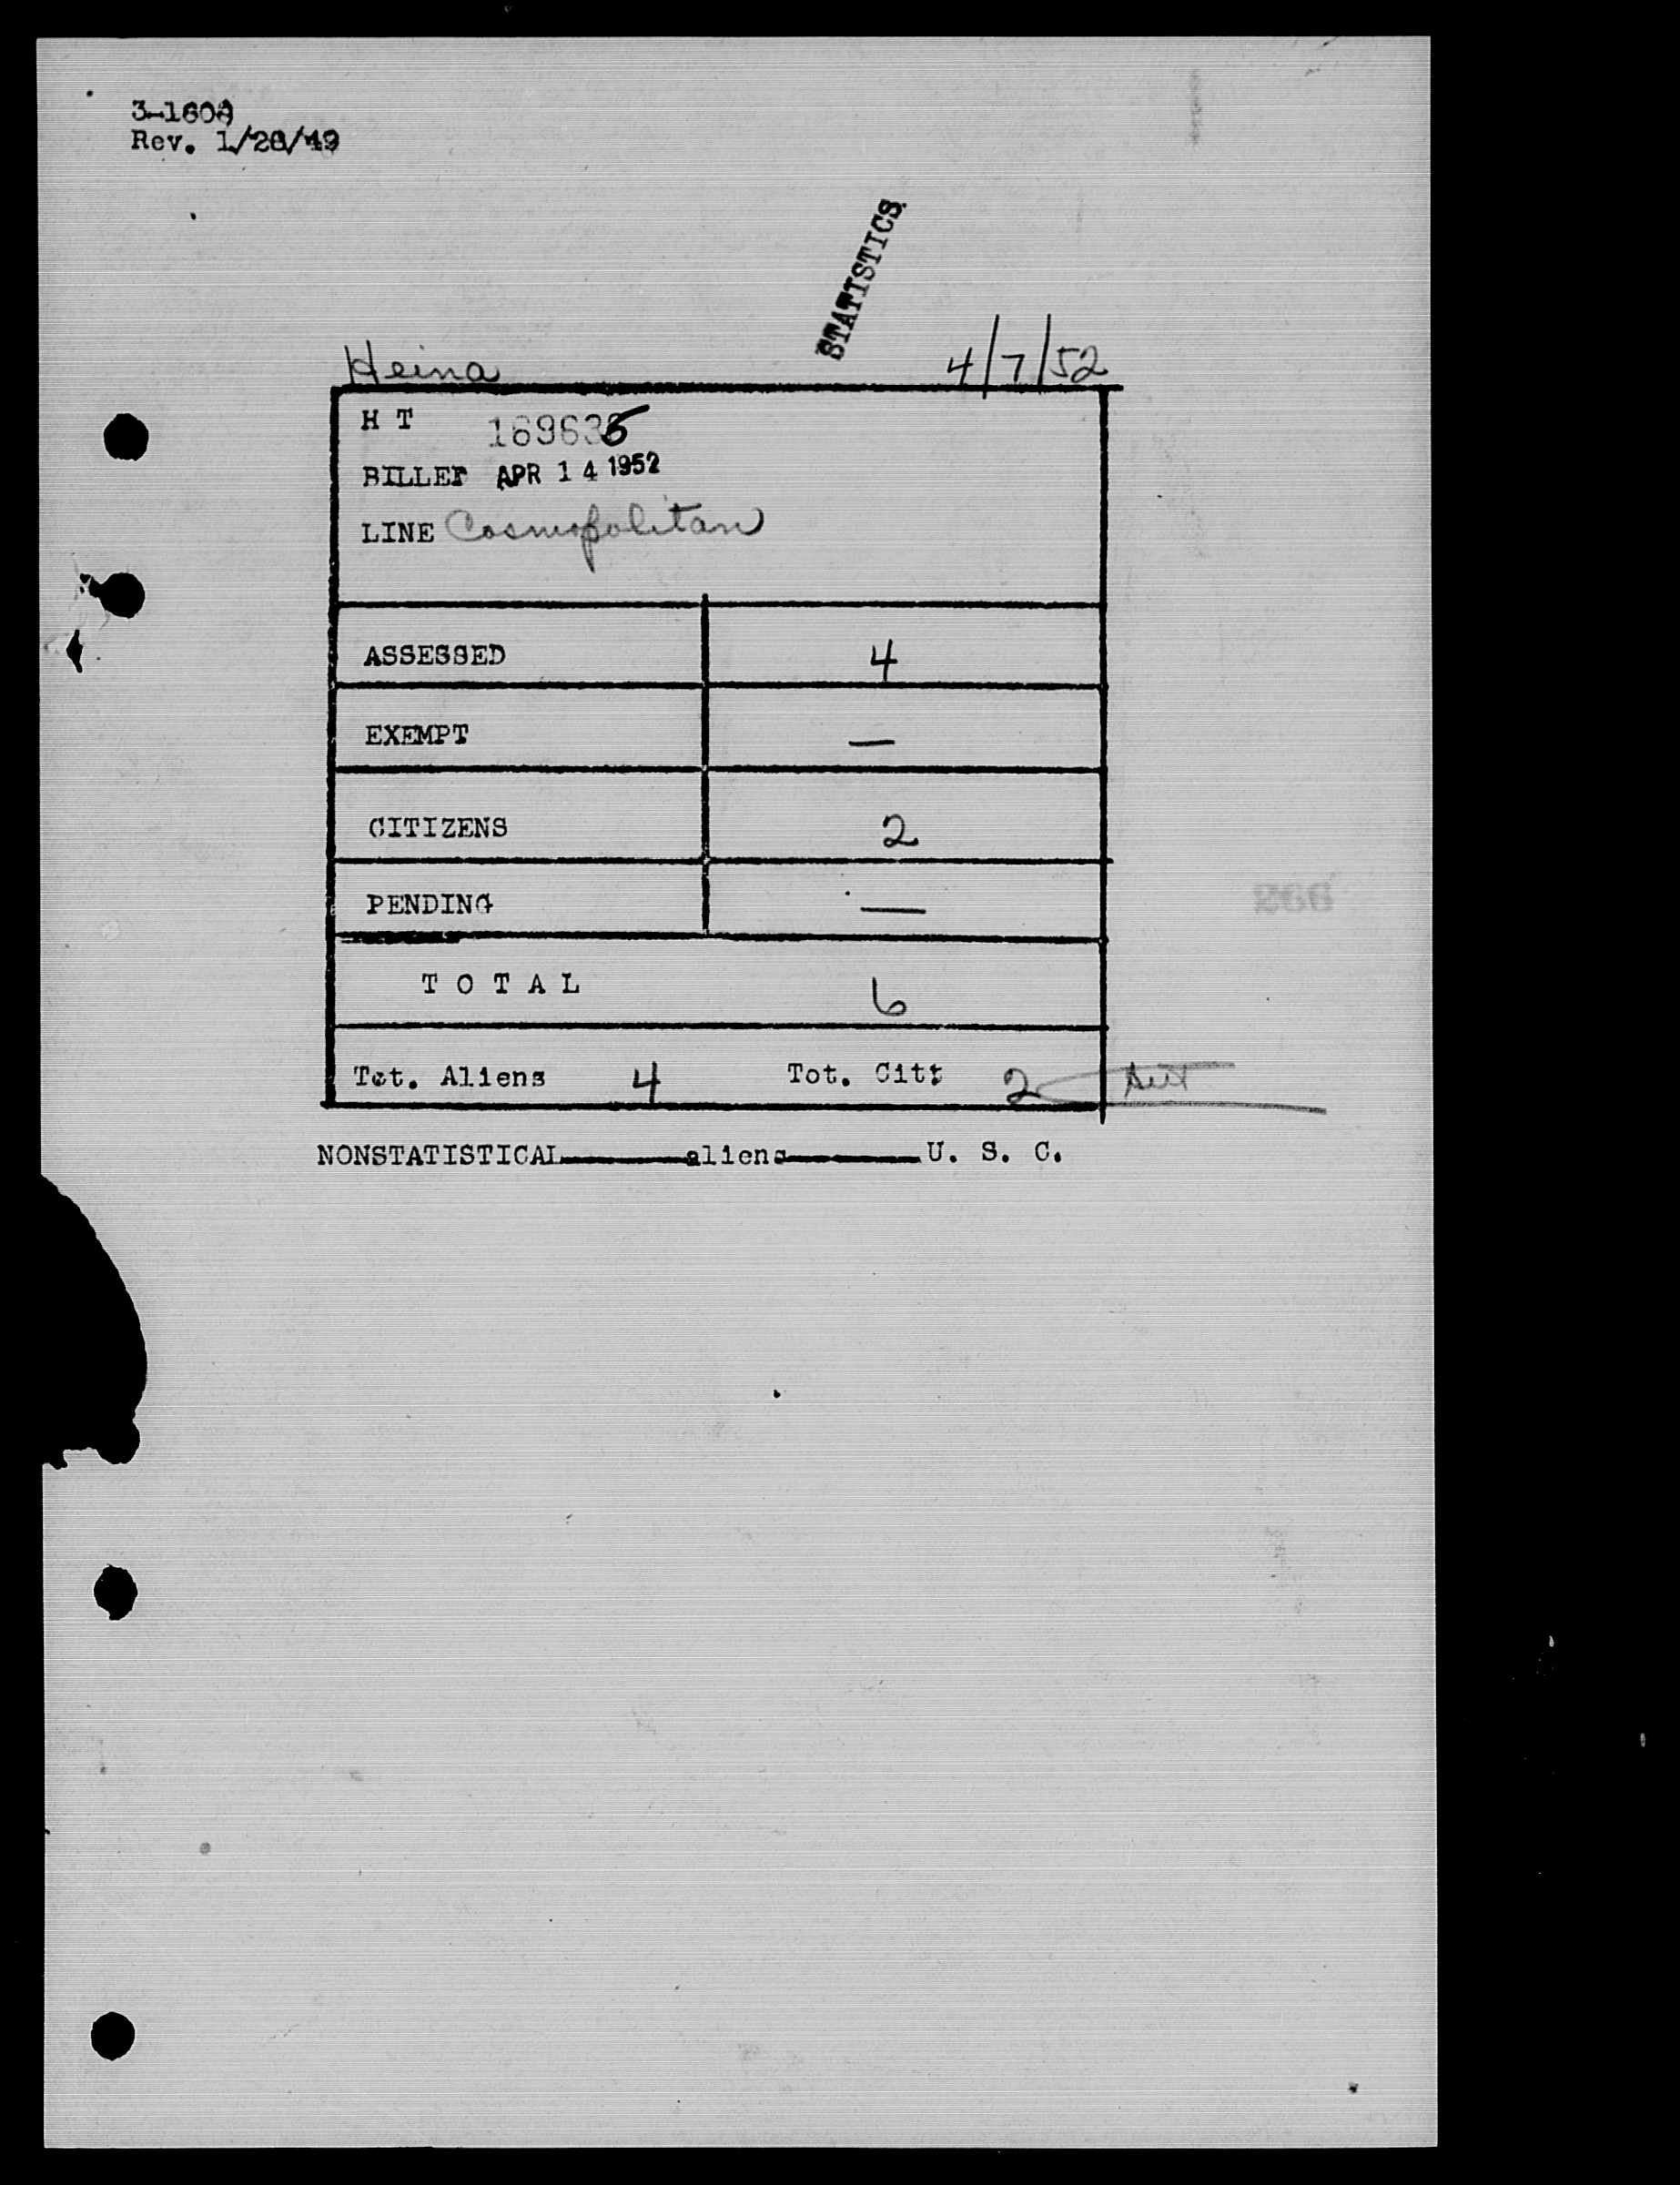 3-1608
Rev. 1/28/49
STATISTICS.
Heina 4/7/52
H T 169635
BILLED APR 14 1952
LINE Cosmopolitan
ASSESSED 4
EXEMPT —
CITIZENS 2
PENDING —
T O T A L 6
Tot. Aliens 4 Tot. Citz 2
NONSTATISTICAL aliens U. S. C.